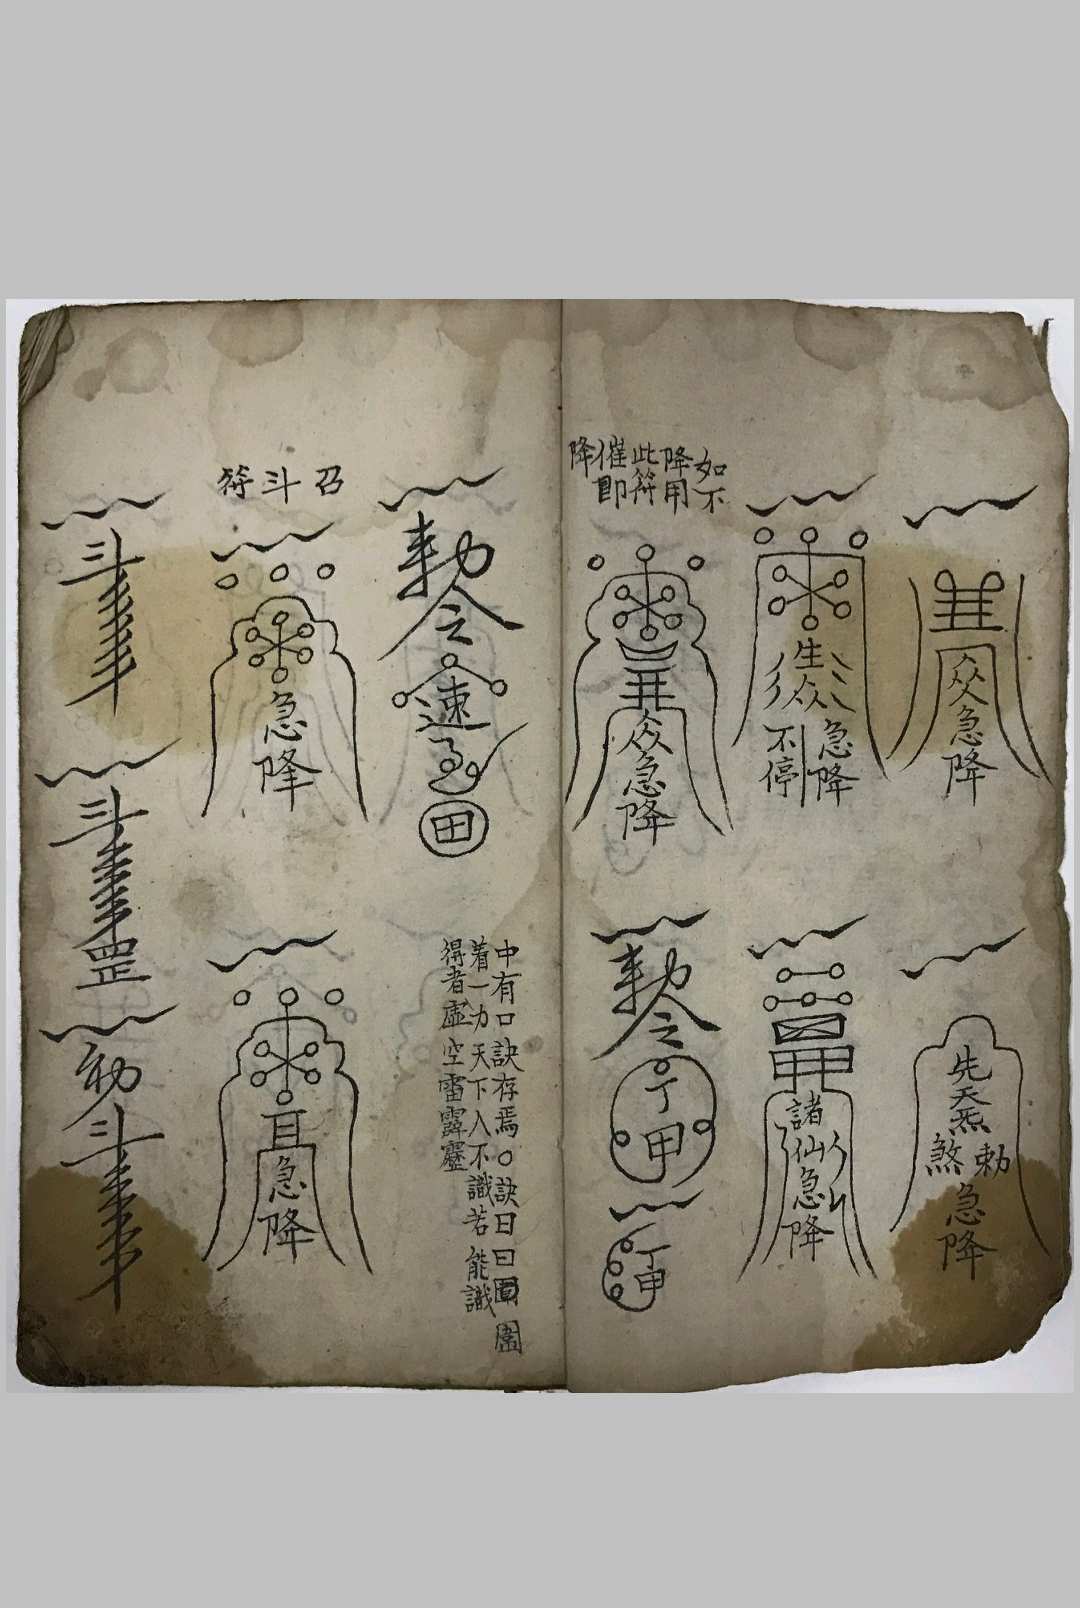 众急降
先天炁
勅
煞
急降
生众
急降
不停
諸仙急降
如不
降用
此符
催即
降
众急降
勅令
丁甲
丁甲
勅令
速
田
中有口訣存焉○訣曰
着一力天下人不識若能識
得者虛空雷霹靂
召斗符
急降
耳急降
斗
斗
罡
勅
斗